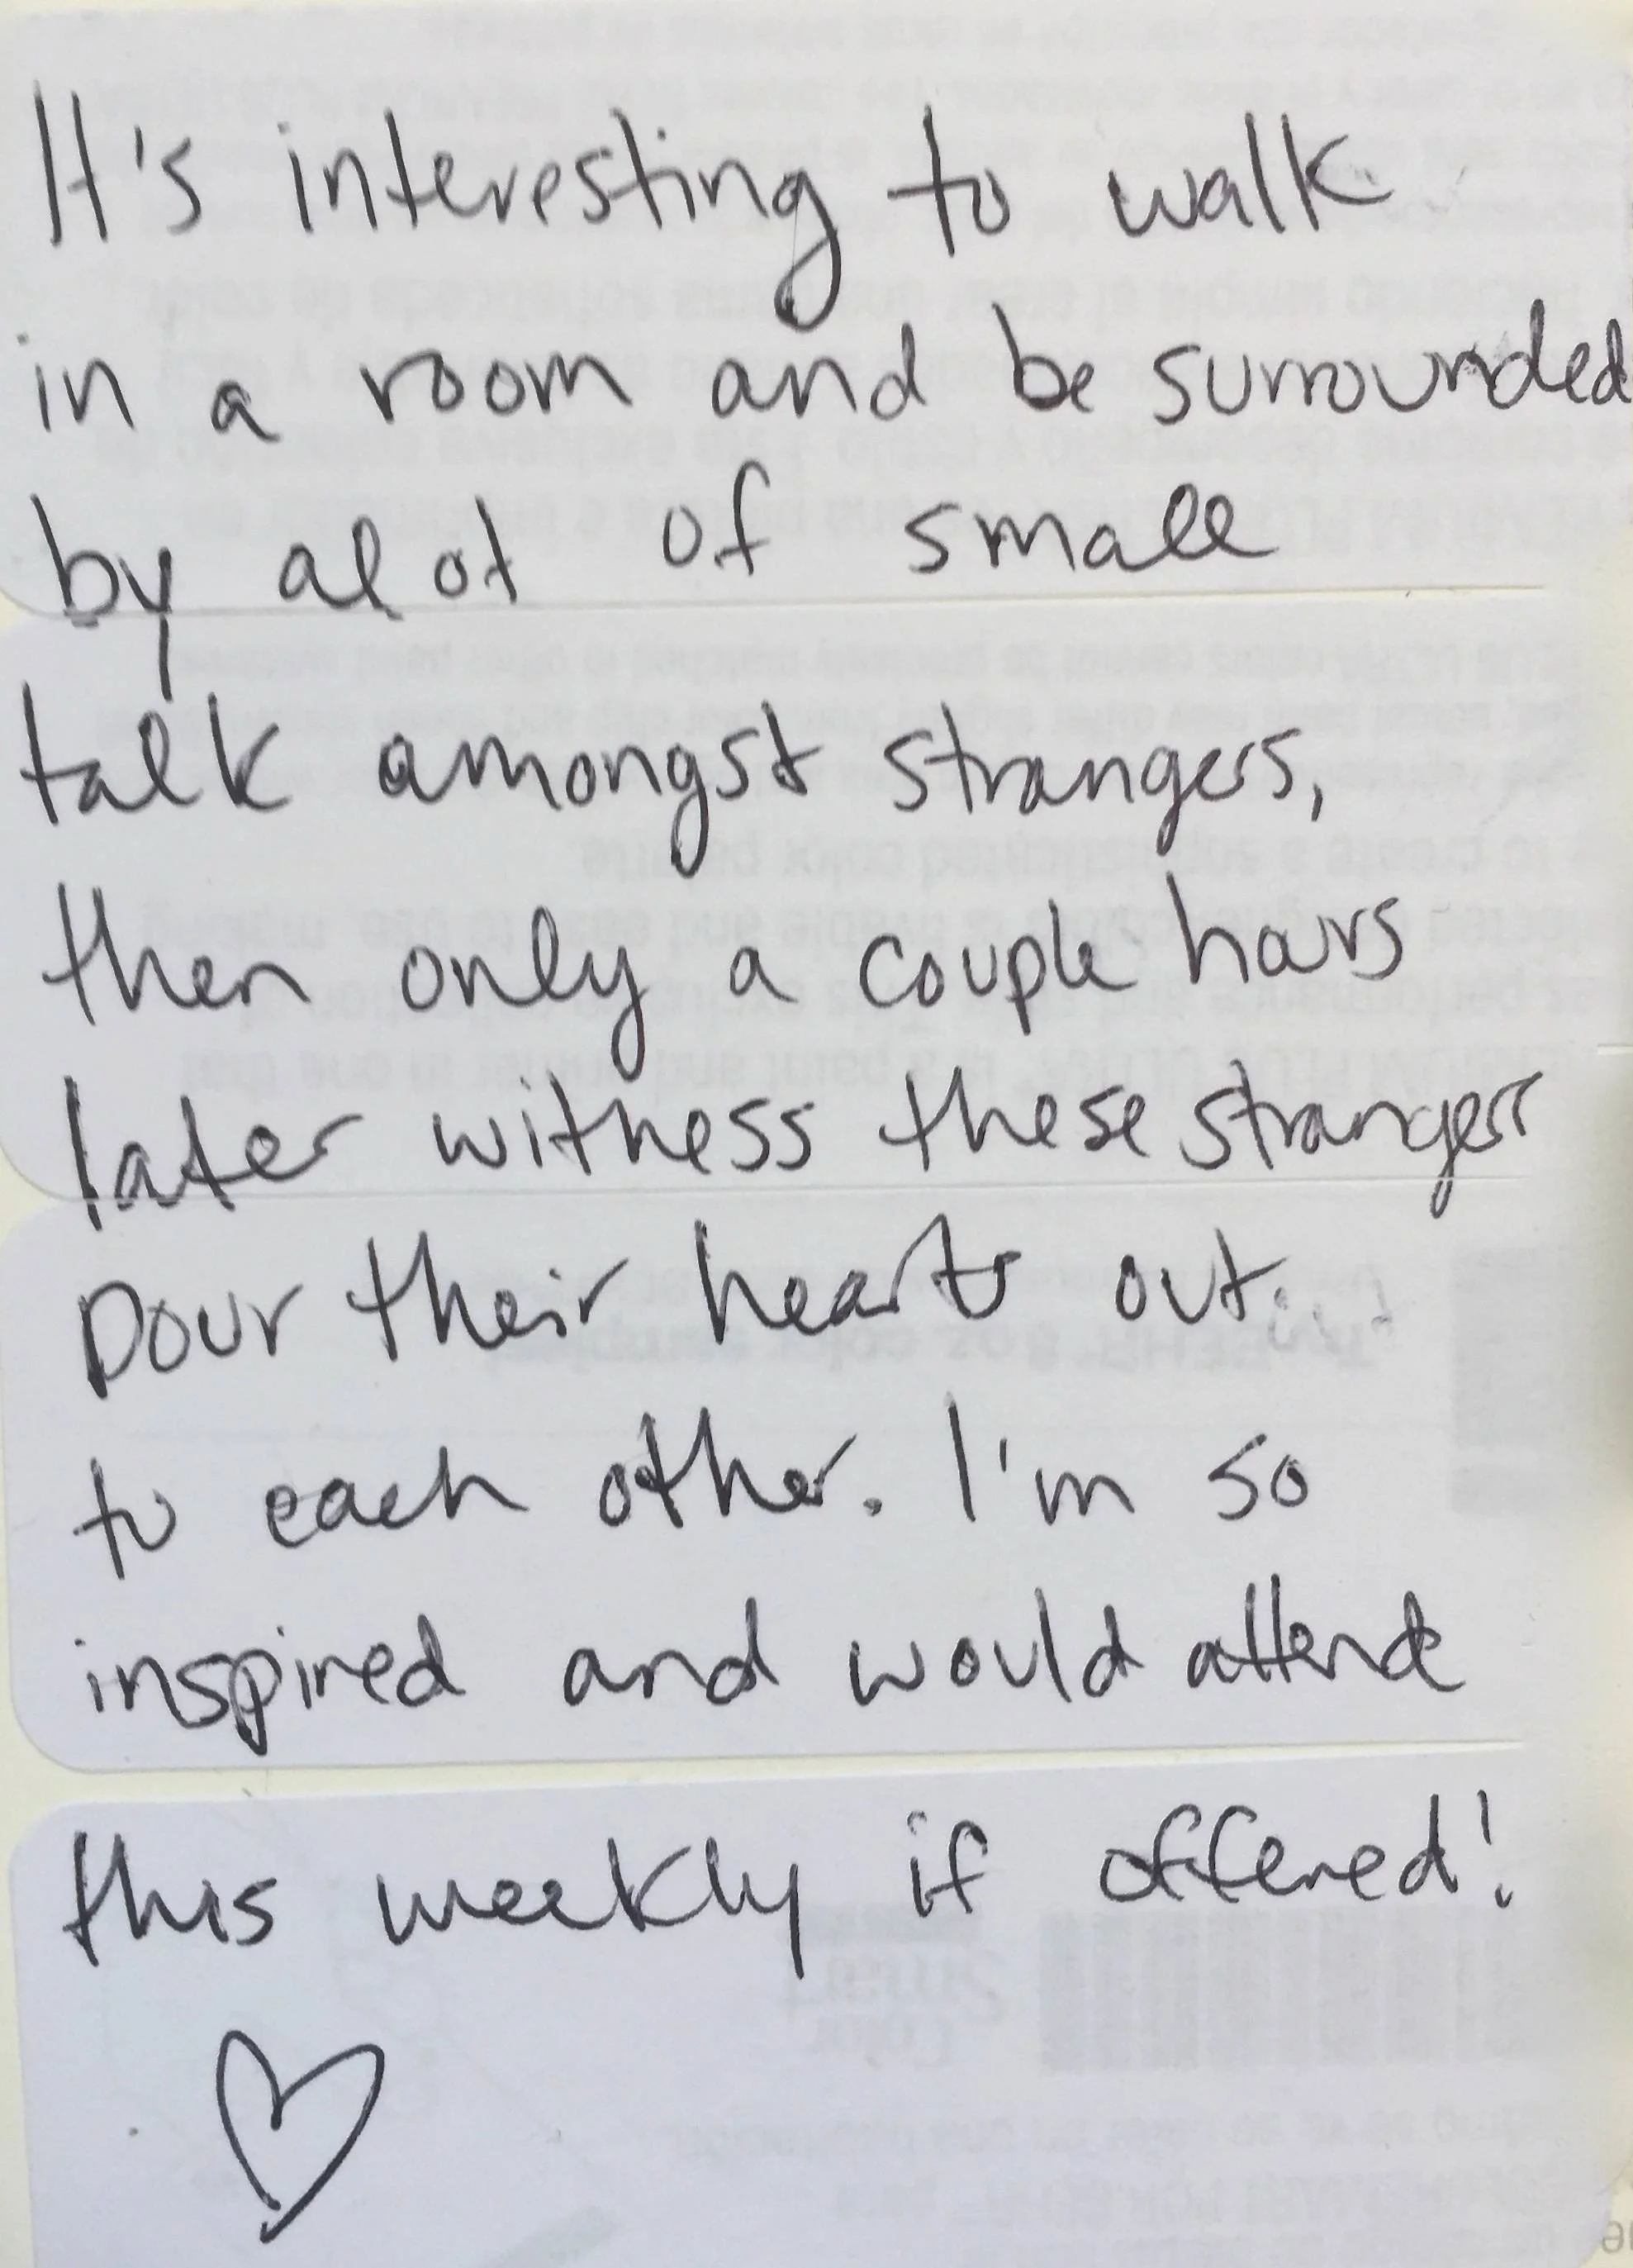 It's interesting to walk
in a room and be surrounded
by alot of small
talk amongst strangers,
then only a couple hours
later witness these strangers
pour their hearts out
to each other. I'm so
inspired and would attend
this weekly if offered!